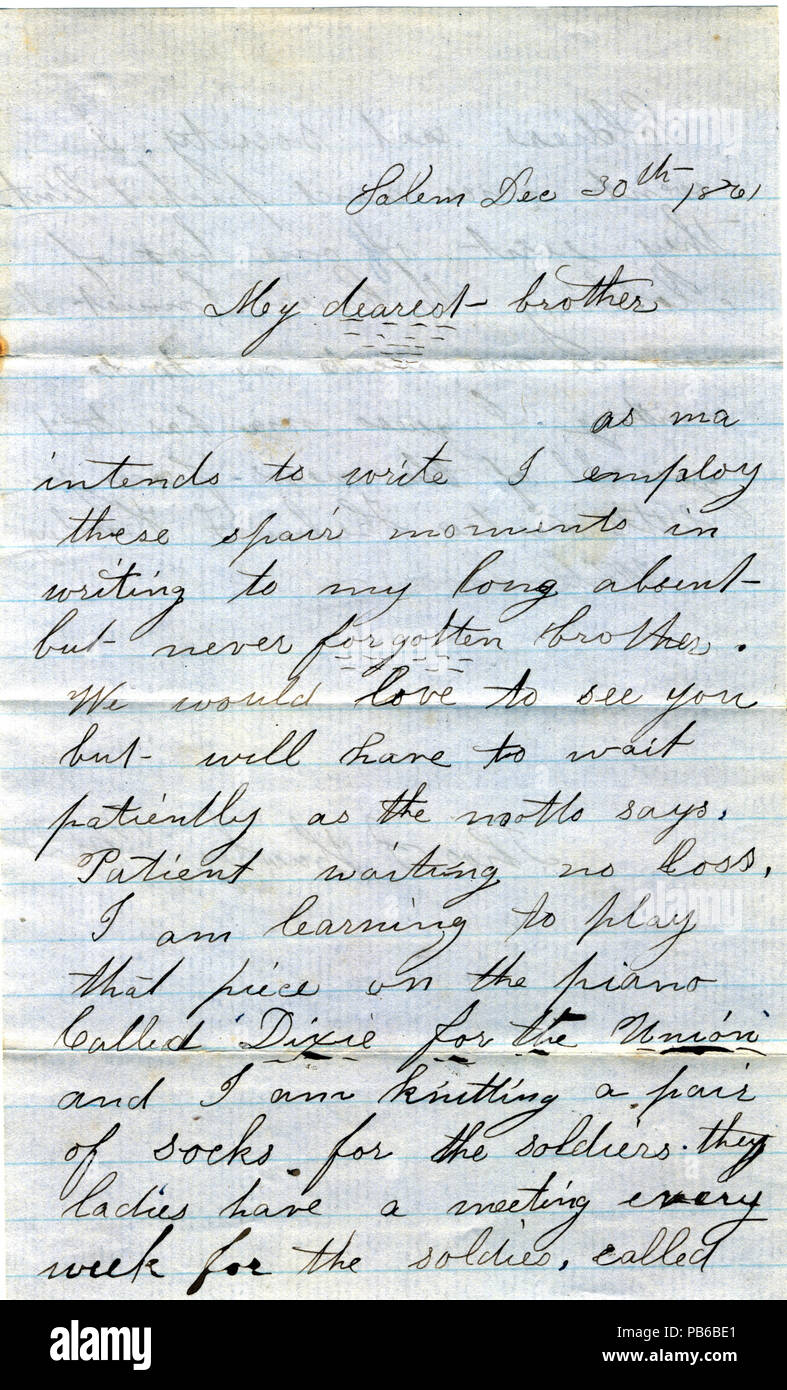 Salem Dec 30th 1861
My dearest brother
as ma
intends to write I employ
these spair moments in
writing to my long absent
but never forgotten brother.
We would love to see you
but will have to wait
patiently as the motto says.
Patient waiting no loss,
I am learning to play
that piece on the piano
Called 'Dixie for the Union'
and I am knitting a pair
of socks for the soldiers. they
ladies have a meeting every
week for the soldies, called
alamy
Image ID: PB6BE1
www.alamy.com